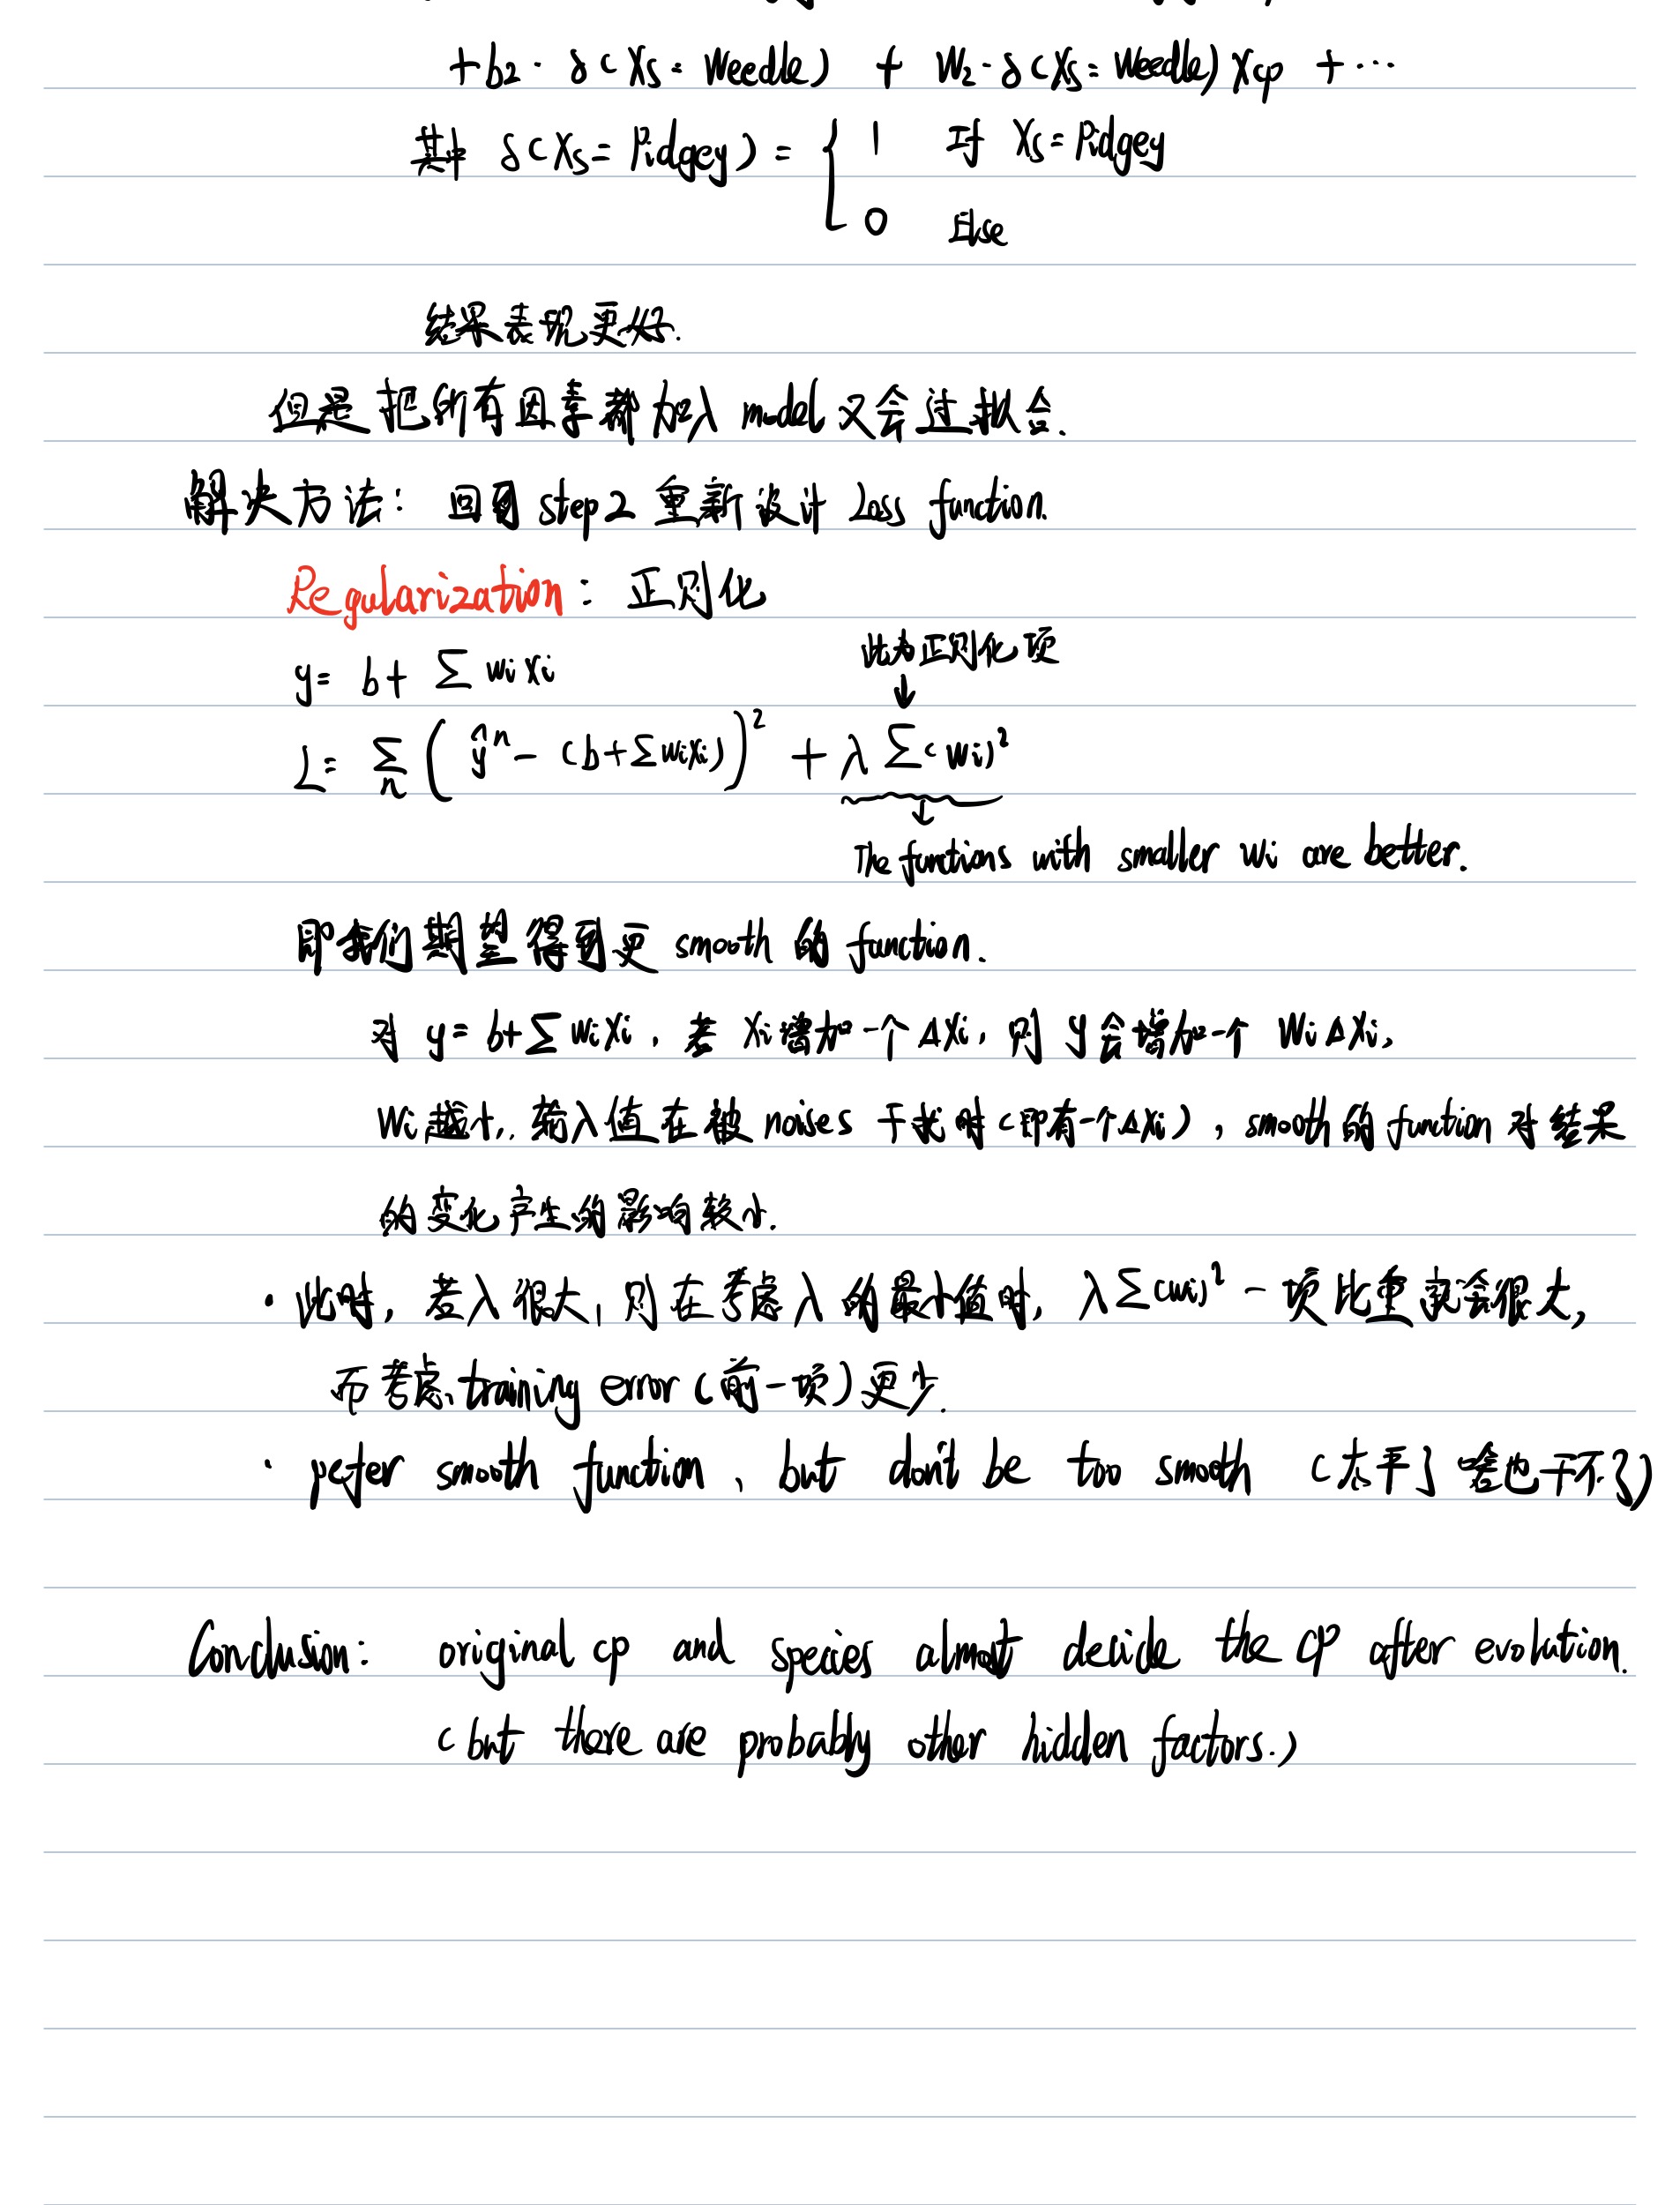 + b2 · δ(Xs = Weedle) + W2 · δ(Xs = Weedle) Xcp + ···
其中 δ(Xs = Pidgey) = { 1 If Xs = Pidgey
0 Else
结果表现更好.
但是把所有因素都加入 model 又会过拟合.
解决方法: 回到 step 2 重新设计 Loss function.
Regularization: 正则化
此为正则化项
↓
y = b + Σ wixi
L = Σn ( ŷⁿ - (b + Σwixi) )² + λ Σ(wi)²
↓
The functions with smaller wi are better.
即我们期望得到更 smooth 的 function.
对 y = b + Σ wixi, 若 xi 增加一个 Δxi, 则 y 会增加一个 wiΔxi,
Wi 越小, 输入值在被 noises 干扰时 (即有一个Δxi), smooth 的 function 对结果
的变化产生的影响较小.
· 此时, 若λ很大, 则在考虑λ的最小值时, λΣ(wi)² 一项比重就会很大,
而考虑 training error (前一项) 更少.
· pefer smooth function, but don't be too smooth (太平了啥也干不了)
Conclusion: original cp and species almost decide the CP after evolution.
(but there are probably other hidden factors.)